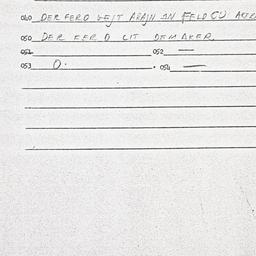 040 DER FERD GEJT ARAJN IN FELD CU
050 DER FERD LIT DEMAKER.
051 052 —
053 0. 054 —